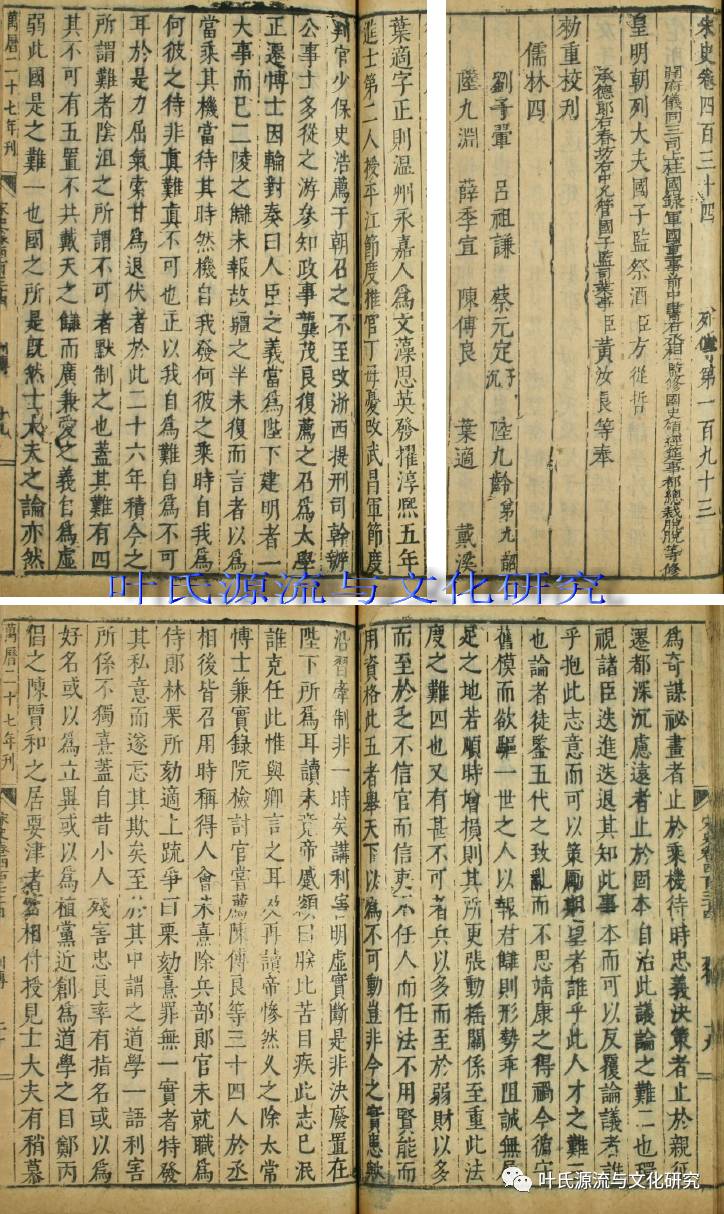 宋史卷四百三十四　列傳第一百九十三
開府儀同三司上柱國錄軍國重事前中書右丞相監修國史領經筵事都總裁脫脫等修
皇明朝列大夫國子監祭酒臣方從哲
承德郎右春坊右中允管國子監司業事臣黃汝良等奉
勑重校刊
儒林四
劉子翬　呂祖謙　蔡元定子沉　陸九齡弟九韶
陸九淵　薛季宣　陳傅良　葉適　戴溪
葉適字正則温州永嘉人爲文藻思英發擢淳熙五年
進士第二人授平江節度推官丁母憂改武昌軍節度
判官少保史浩薦于朝召之不至改浙西提刑司幹辦
公事士多從之游參知政事龔茂良復薦之召爲太學
正遷博士因輪對奏曰人臣之義當爲陛下建明者一
大事而已二陵之讎未報故疆之半未復而言者以爲
當乘其機當待其時然機自我發何彼之乘時自我爲
何彼之待非眞難眞不可也正以我自爲難自爲不可
耳於是力屈氣索甘爲退伏者於此二十六年積今之
所謂難者陰沮之所謂不可者默制之也蓋其難有四
其不可有五置不共戴天之讎而廣兼愛之義自爲虛
弱此國是之難一也國之所是旣然士大夫之論亦然
萬曆二十七年刊
叶氏源流与文化研究
爲奇謀祕畫者止於乘機待時忠義決策者止於親征
遷都深沉慮遠者止於固本自治此議論之難二也環
視諸臣迭進迭退其知此事本而可以反覆論議者誰
乎抱此志意而可以策勵期望者誰乎此人才之難三
也論者徒鑒五代之致亂而不思靖康之得禍今循守
舊模而欲驅一世之人以報君讎則形勢乖阻誠無展
足之地若順時增損則其所更張動搖關係至重此法
度之難四也又有甚不可者兵以多而至於弱財以多
而至於乏不信官而信吏不任人而任法不用賢能而
用資格此五者舉天下以爲不可動豈非今之實患歟
沿習牽制非一時矣講利害明虛實斷是非決廢置在
陛下所爲耳讀未竟帝蹙額曰朕比苦目疾此志已泯
誰克任此惟與卿言之耳及再讀帝慘然久之除太常
博士兼實錄院檢討官嘗薦陳傅良等三十四人於丞
相後皆召用時稱得人會朱熹除兵部郎官未就職爲
侍郎林栗所劾適上疏爭曰栗劾熹罪無一實者特發
其私意而遂忘其欺矣至於其中謂之道學一語利害
所係不獨熹蓋自昔小人殘害忠良率有指名或以爲
好名或以爲立異或以爲植黨近創爲道學之目鄭丙
倡之陳賈和之居要津者密相付授見士大夫有稍慕
萬曆二十七年刊
叶氏源流与文化研究